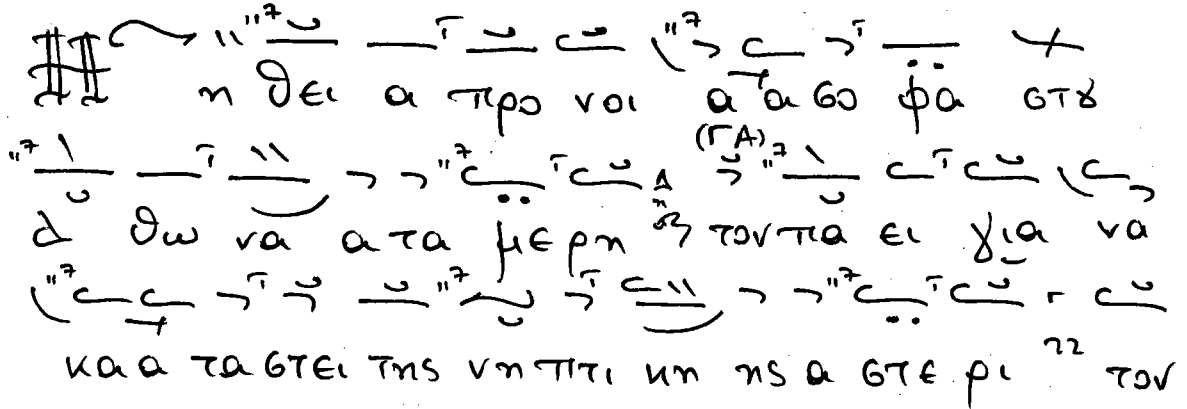 η θει α προ νοι α α σο φα στȣ
(ΓΑ)
δ θω να α τα μερη τον πα ει για να
κα α τα στει της νη πτι κη ης α στε ρι τον